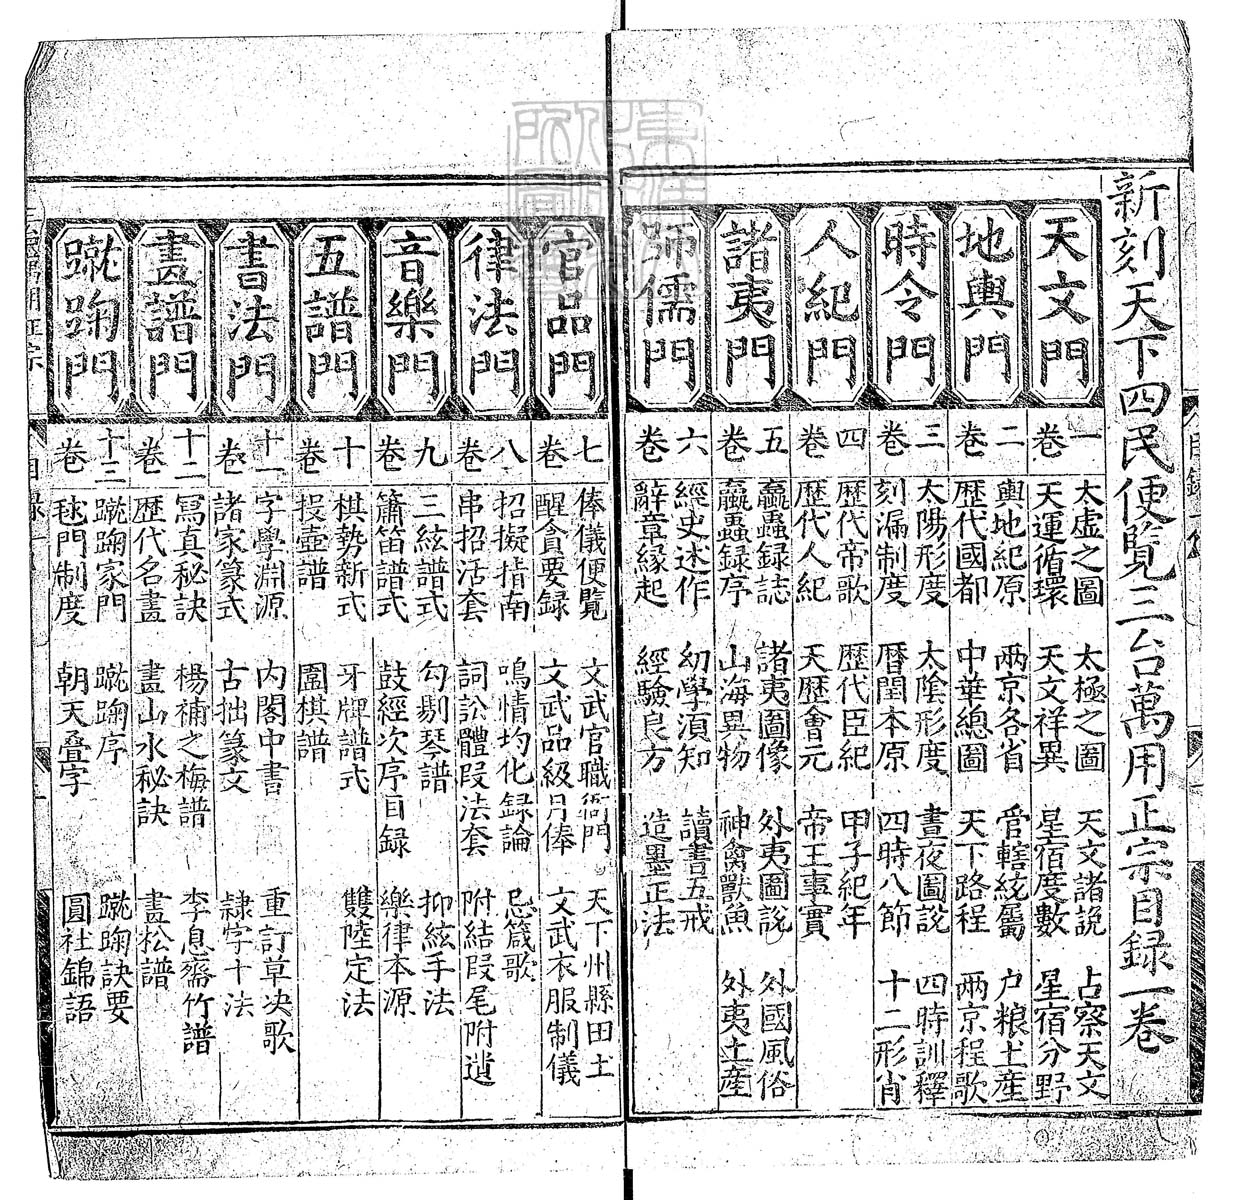 新刻天下四民便覽三台萬用正宗目録一卷
天文門
一卷
太虚之圖 太極之圖 天文諸説 占察天文
天運循環 天文祥異 星宿度數 星宿分野
地輿門
二卷
輿地紀原 兩京各省 管轄統屬 户粮土産
歷代國都 中華總圖 天下路程 兩京程歌
時令門
三卷
太陽形度 太陰形度 晝夜圖説 四時訓釋
刻漏制度 曆閏本原 四時八節 十二形肖
人紀門
四卷
歷代帝歌 歷代臣紀 甲子紀年
歷代人紀 天歷會元 帝王事實
諸夷門
五卷
臝蟲録誌 諸夷圖像 外夷圖説 外國風俗
臝蟲録序 山海異物 神禽獸魚 外夷土産
師儒門
六卷
經史述作 幼學須知 讀書五戒
辭章縁起 經驗良方 造墨正法
官品門
七卷
俸儀便覽 文武官職衙門 天下州縣田土
醒貪要録 文武品級月俸 文武衣服制儀
律法門
八卷
招擬指南 鳴情均化録論 忌箴歌
串招活套 詞訟體段法套 附結段尾附遺
音樂門
九卷
三絃譜式 勾剔琴譜 抑絃手法
簫笛譜式 鼓經次序目録 樂律本源
五譜門
十卷
棋勢新式 牙牌譜式 雙陸定法
投壺譜 圍棋譜
書法門
十一卷
字學淵源 内閣中書 重訂草决歌
諸家篆式 古拙篆文 隷字十法
畫譜門
十二卷
寫真秘訣 楊補之梅譜 李息齋竹譜
歷代名畫 畫山水秘訣 畫松譜
蹴踘門
十三卷
蹴踘家門 蹴踘序 蹴踘訣要
毬門制度 朝天叠字 圓社錦語